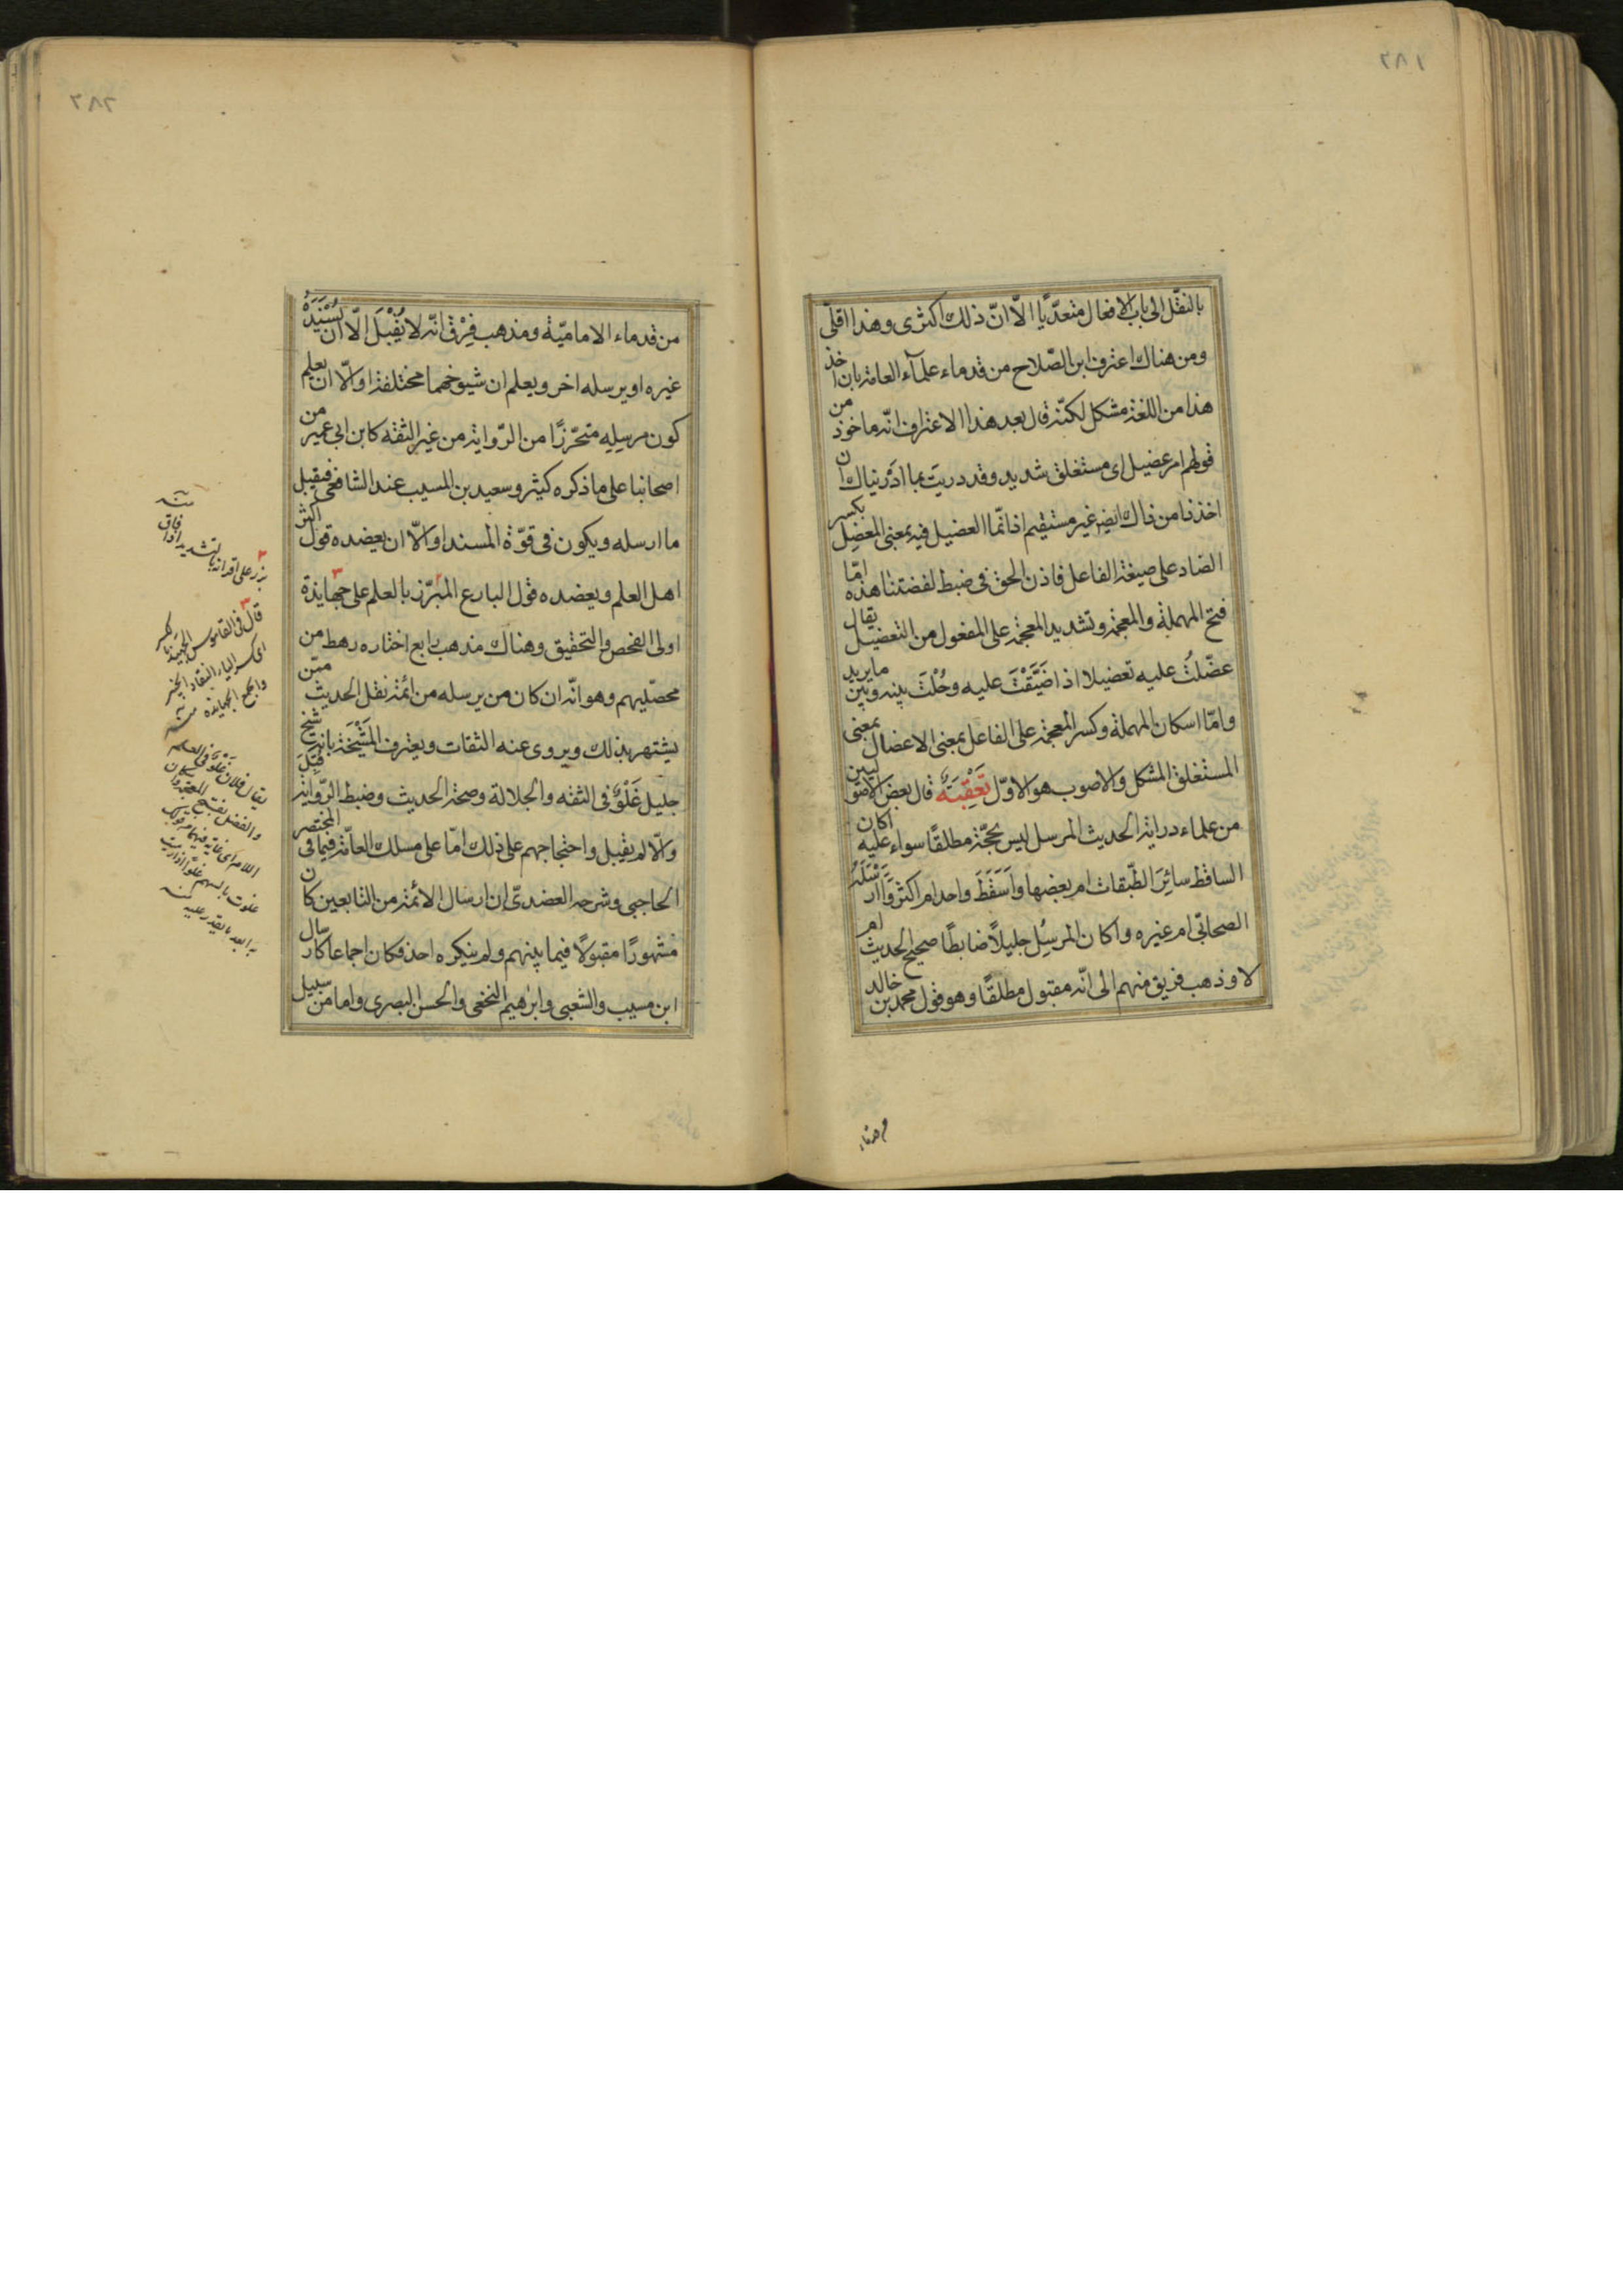 ٢٨١
بالنقل الى باب الافعال متعدّيًا الّا انّ ذلك اكثرى وهذا اقلّى
ومن هناك اعترف ابن الصّلاح من قدماء علمآء العامة بان اخذ
هذا من اللغة مشكل لكنّه قال بعد هذا الاعتراف انّه ماخوذ من
قولهم امر عضيل اى مستغلق شديد وقد دريت بما ادريناك ان
اخذنا من ذاك ايضا غير مستقيم اذ انّما العضيل فيه بمعنى المعضِل بكسر
الضاد على صيغة الفاعل فاذن الحق فى ضبط لفضتنا هذه امّا
فتح المهملة والمعجمة وتشديد المعجمة على المفعول من التعضيل يقال
عضّلتُ عليه تعضيلا اذا ضَيَّقْتَ عليه وحُلْتَ بينه وبين ما يريد
وامّا اسكان المهملة وكسر المعجمة على الفاعل بمعنى الاعضال بمعنى
المستغلق المشكل والاصوب هو الاوّل تَعْقِبَةٌ قال بعض الاصوليين
من علماء دراية الحديث المرسل ليس بحجّة مطلقًا سواء عليه اكان
الساقط سائِرَ الطّبقات ام بعضها واَسَقَطَ واحد ام اكثر وَاَارْسَلَهُ
الصحابّى ام غيره واكان المرسِل جليلًا ضابطًا صحيح الحديث ام
لا وذهب فريق منهم الى انّه مقبول مطلقًا وهو قول محمد بن خالد
من قدماء
٢٨٢
من قدماء الاماميّة ومذهب فِرْق انّه لا يُقْبَل الّا ان يُسْنِدَهُ
غيره او يرسله اخر ويعلم ان شيوخهما مختلفة او الّا ان يعلم
كون مرسِله متحرّزًا من الرّواية من غير الثقة كابن ابى عمير من
اصحابنا على ما ذكره كثير وسعيد بن المسيب عند الشافعى فيقبل
ما ارسله ويكون فى قوّة المسند او الّا ان يعضده قول اكثر
اهل العلم ويعضده قول البارع المبرّز بالعلم على جهابذة
اولى الفحص والتحقيق وهناك مذهب رابع اختاره رهط من
محصّليهم وهو انّه ان كان من يرسله من ائمة نقل الحديث ممّن
يشتهر بذلك ويروى عنه الثقات ويعترف المَشْيَخَة بانه شيخ
جليل غَلْوٌ فى الثقه والجلالة وصحة الحديث وضبط الرّواية قُبِلَ
والّا لم يقبل واحتجاجهم على ذلك امّا على مسلك العامّة فيما فى المختصر
الحاجبى وشرحه العضدىّ ان ارسال الائمة من التابعين كان
مشهورًا مقبولًا فيما بينهم ولم ينكره احد فكان اجماعا كارسال
ابن مسيب والشعبى وابرٰهيم النخعى والحسن البصرى واما من سبيل
٢
برز على اقرانه بالتشديد اذا فاق
منه
٣
قال فى القاموس الجهبذ بالكسر
النقاد الخبير
والجمع الجهابذة
منه
يقال فلان غلو فى العلم
والفضل بفتح المعجمة واسكان
اللام اى غاية فيهما
غلوت بالسهم غلوا اذا رميت
به ابعد ما يقدر عليه
منه